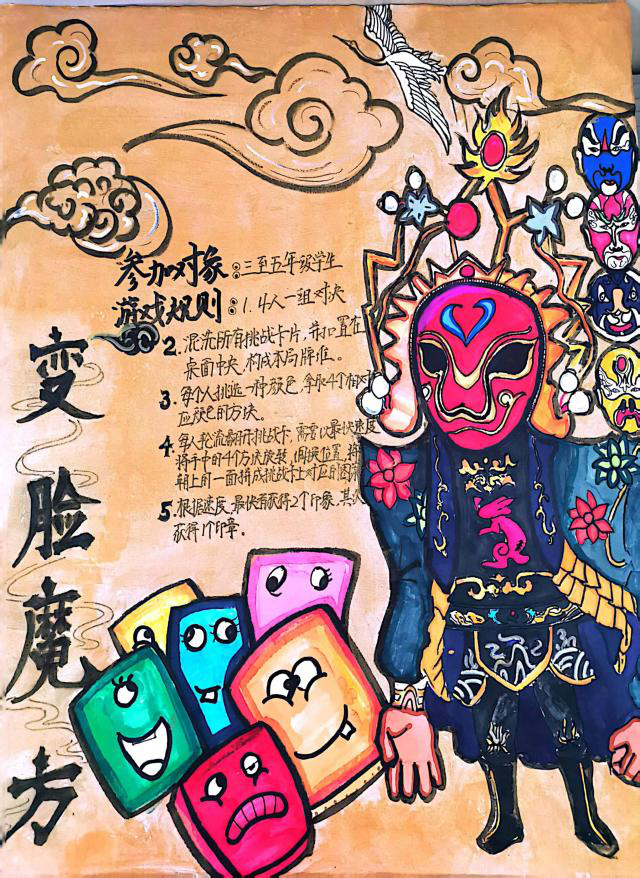 变脸魔方
参加对象：三至五年级学生
游戏规则：1.4人一组对决
2.混洗所有挑战卡片，并扣置在
桌面中央，构成本局牌堆。
3.每个人挑选一种颜色，拿取4个相对
应颜色的方块。
4.每人轮流翻开挑战卡，需要以最快速度
将手中的4个方块旋转、调换位置，将
朝上的一面拼成挑战卡上对应的图
5.根据速度，最快者获得2个印象，其
获得1个印章。